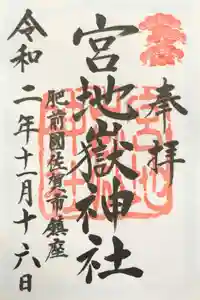 奉拝
宮地嶽神社
肥前國佐賀市鎮座
令和二年十一月十六日